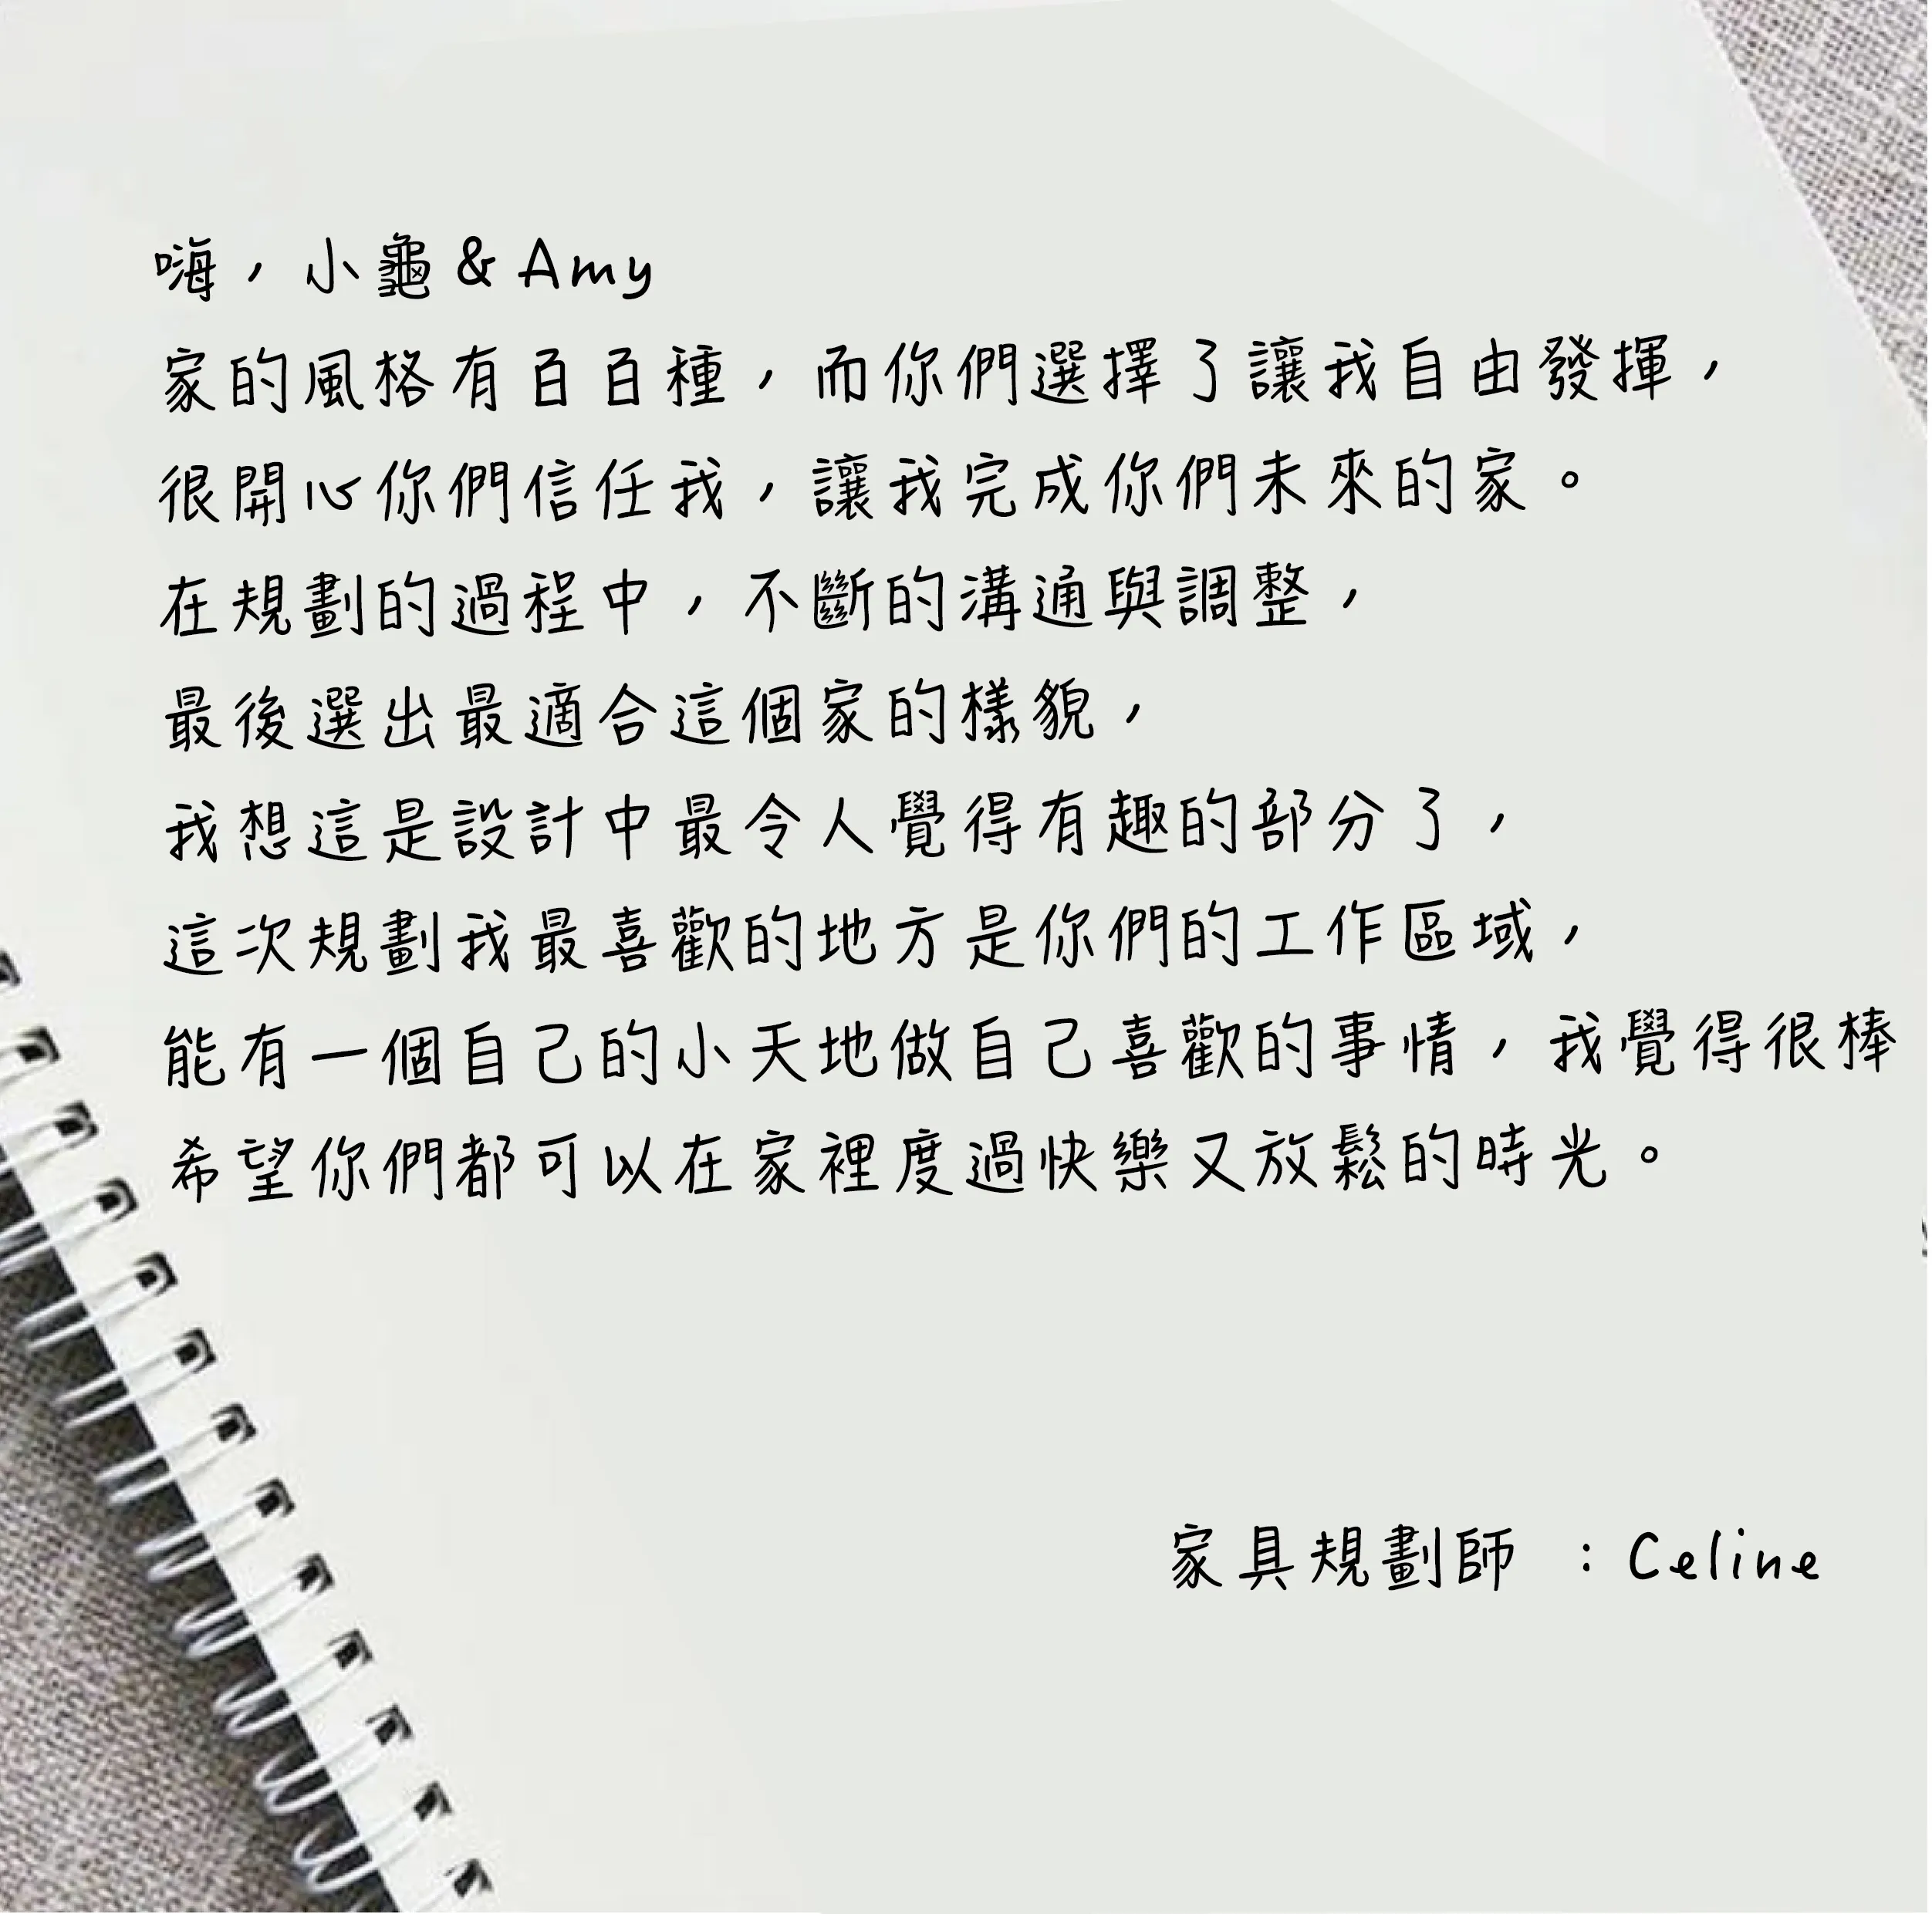 嗨，小龜 & Amy
家的風格有百百種，而你們選擇了讓我自由發揮，
很開心你們信任我，讓我完成你們未來的家。
在規劃的過程中，不斷的溝通與調整，
最後選出最適合這個家的樣貌，
我想這是設計中最令人覺得有趣的部分了，
這次規劃我最喜歡的地方是你們的工作區域，
能有一個自己的小天地做自己喜歡的事情，我覺得很棒
希望你們都可以在家裡度過快樂又放鬆的時光。
家具規劃師 ：Celine